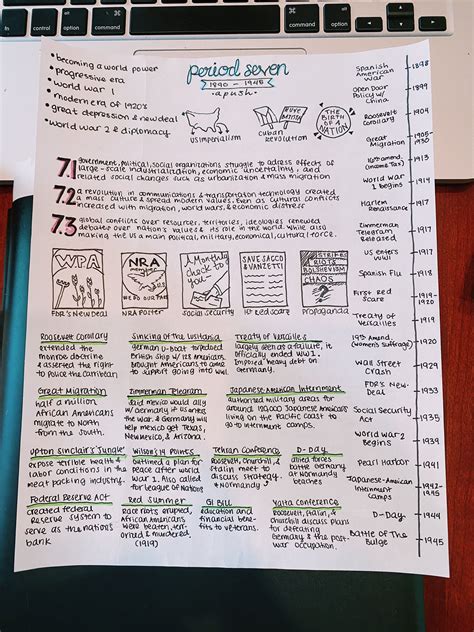 control
option
command
command
option
• becoming a world power
• progressive era
• world war 1
• modern era of 1920's
• great depression & new deal
• world war 2 & diplomacy
period seven
1890 - 1945
• apush •
US imperialism
Cuban Revolution
THE BIRTH OF A NATION
7.1 government, political, social organizations struggle to address effects of
large-scale industrialization, economic uncertainty, and
related social changes such as urbanization & mass migration
7.2 a revolution in communications & transportation technology created
a mass culture & spread modern values. Even as cultural conflicts
increased with migration, world wars, & economic distress
7.3 global conflicts over resources, territories, ideologies renewed
debates over nation's values & its role in the world. While also
making the US a main political, military, economical, cultural force.
WPA
FDR's New Deal
NRA
WE DO OUR PART
NRA Poster
A Monthly check to you
Social security
SAVE SACCO & VANZETTI
1st red scare
STRIKES
RIOTS
BOLSHEVISM
CHAOS
propaganda
Roosevelt Corollary
extended the
monroe doctrine
& asserted the right
to police the Carribean
Sinking of the Lusitania
german U-Boat torpedoed
British ship w/ 128 Americans
brought Americans to come
to support going into WW1
Treaty of Versailles
largely seen as a failure, it
officially ended WW1.
Imposed heavy debt on
Germany.
Great Migration
half a million
African Americans
migrate to North
from the South.
Zimmerman Telegram
said mexico would ally
w/ Germany if US enters
the war & Germany will
help mexico get Texas,
New mexico, & Arizona.
Japanese-American Internment
authorized military areas for
around 120,000 Japanese Americans
living on the Pacific coast to
go to internment camps.
Upton Sinclair's "Jungle"
expose terrible health &
labor conditions in the
meat packing industry.
Wilson's 14 Points
outlined a plan for
peace after world
war 1. Also called
for league of Nations
Tehran Conference
Roosevelt, Churchill, &
Stalin meet to
discuss strategy
D-Day
allied forces
battle Germany
at Normandy
beaches
Federal Reserve Act
created federal
reserve system to
serve as the nation's
bank
Red Summer
race riots erupted,
African Americans
were beaten, terr-
orized & murdered.
(1919)
GI Bill
education and
financial bene-
fits to veterans.
Yalta Conference
Roosevelt, Stalin, &
Churchill discuss plans
for defeating
Germany & the post-
war occupation.
Spanish American War 1898
Open Door Policy w/ China 1899
Roosevelt Corollary 1904
Great Migration
16th amend. (Income Tax) 1913
World War 1 begins 1914
Harlem Renaissance 1917
Zimmerman Telegram Released 1917
US enters WW1 1917
Spanish Flu 1918
First Red Scare 1919-1920
Treaty of Versailles 1919
19th Amend. (Women's Suffrage) 1920
Wall Street Crash
FDR's New Deal
Social Security Act 1935
World War 2 begins 1939
Pearl Harbor 1941
Japanese-American Internment Camps 1942-1945
D-Day 1944
Battle Of The Bulge 1945